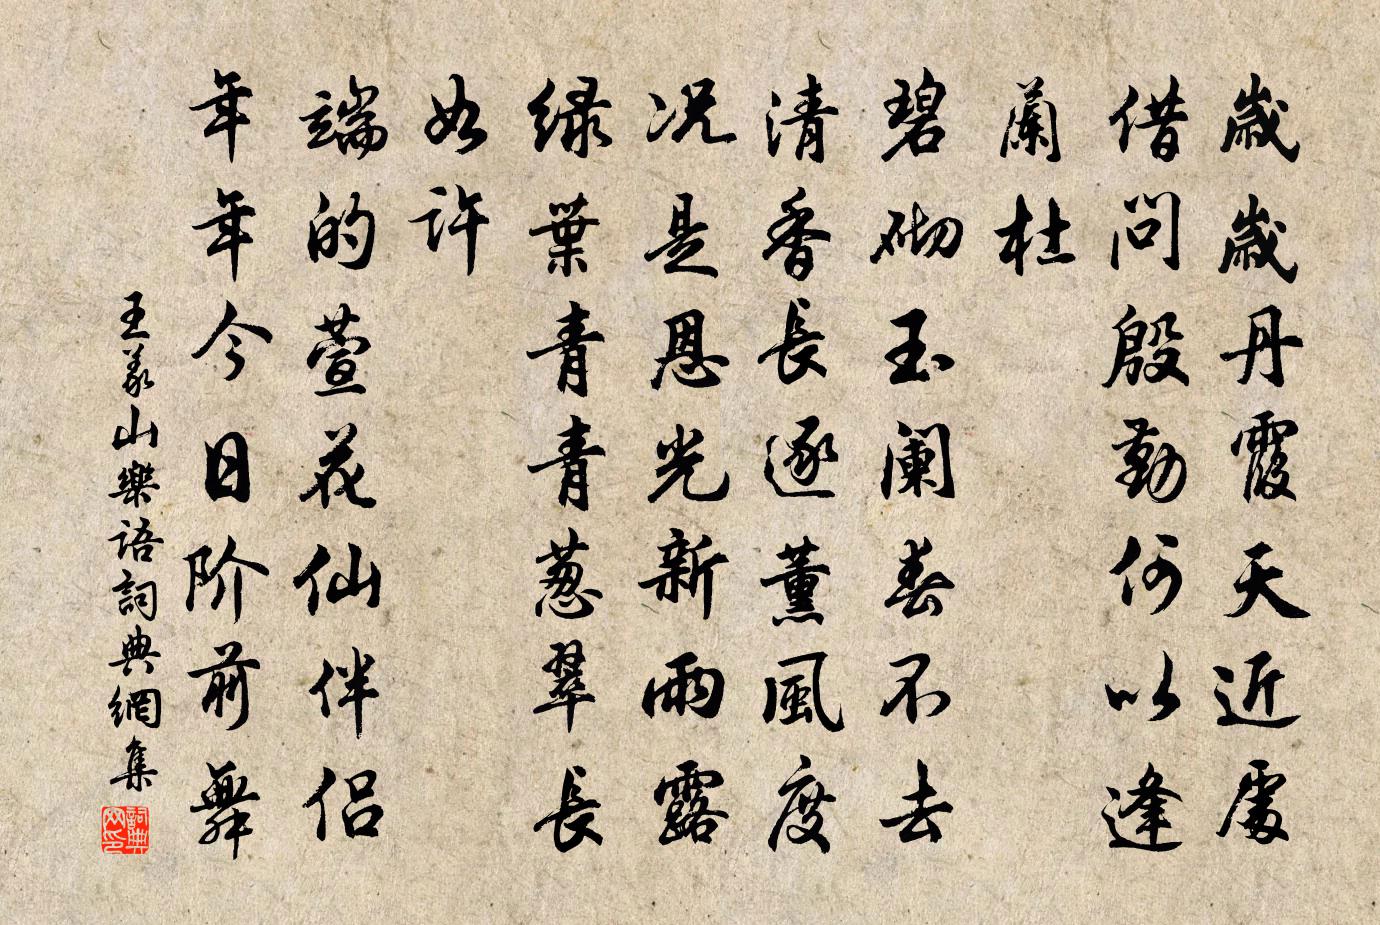 歲歲丹霞天近處
借問殷勤何以逢
蘭杜
碧砌玉闌春不去
清香長逐薰風度
况是恩光新雨露
緑葉青青葱翠長
如许
端的萱花仙伴侣
年年今日阶前舞
王義山樂语詞典網集
詞典網印